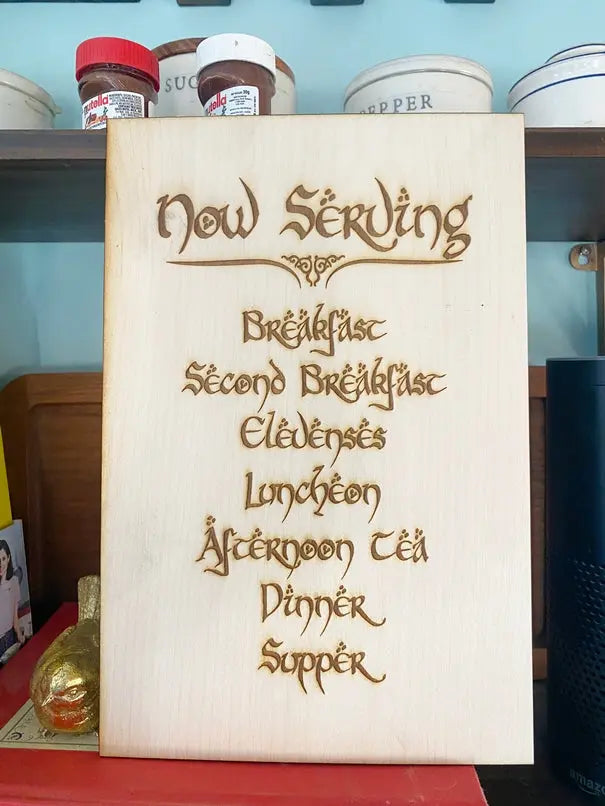 nutella
nutella
SUG
PEPPER
Now Serving
Breakfast
Second Breakfast
Elevenses
Luncheon
Afternoon Tea
Dinner
Supper
amazon